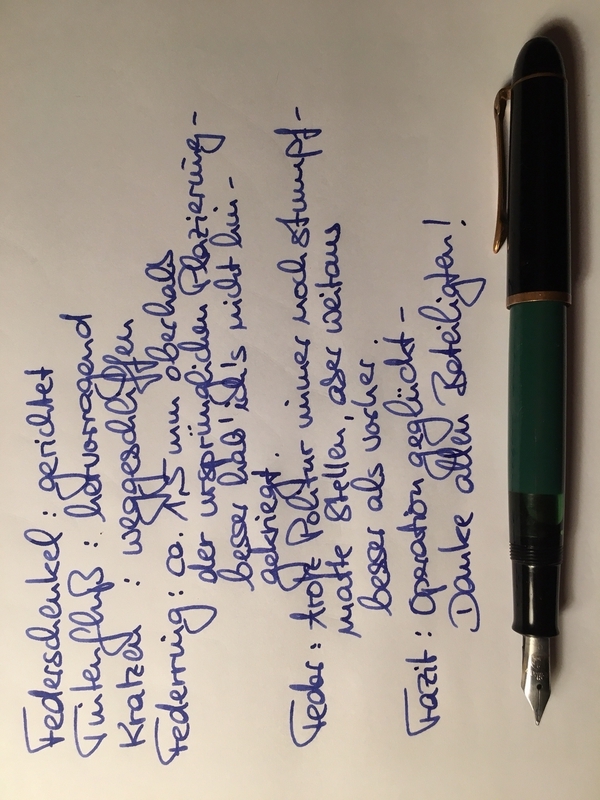 Federschenkel : gerichtet
Tintenfluß : hervorragend
Kratzen : weggeschliffen
Federring : ca. 1,5 mm oberhalb
der ursprünglichen Plazierung -
besser hab' ich's nicht hin -
gekriegt.
Feder : trotz Politur immer noch stumpf -
matte Stellen, aber weitaus
besser als vorher.
Fazit : Operation geglückt -
Danke allen Beteiligten!